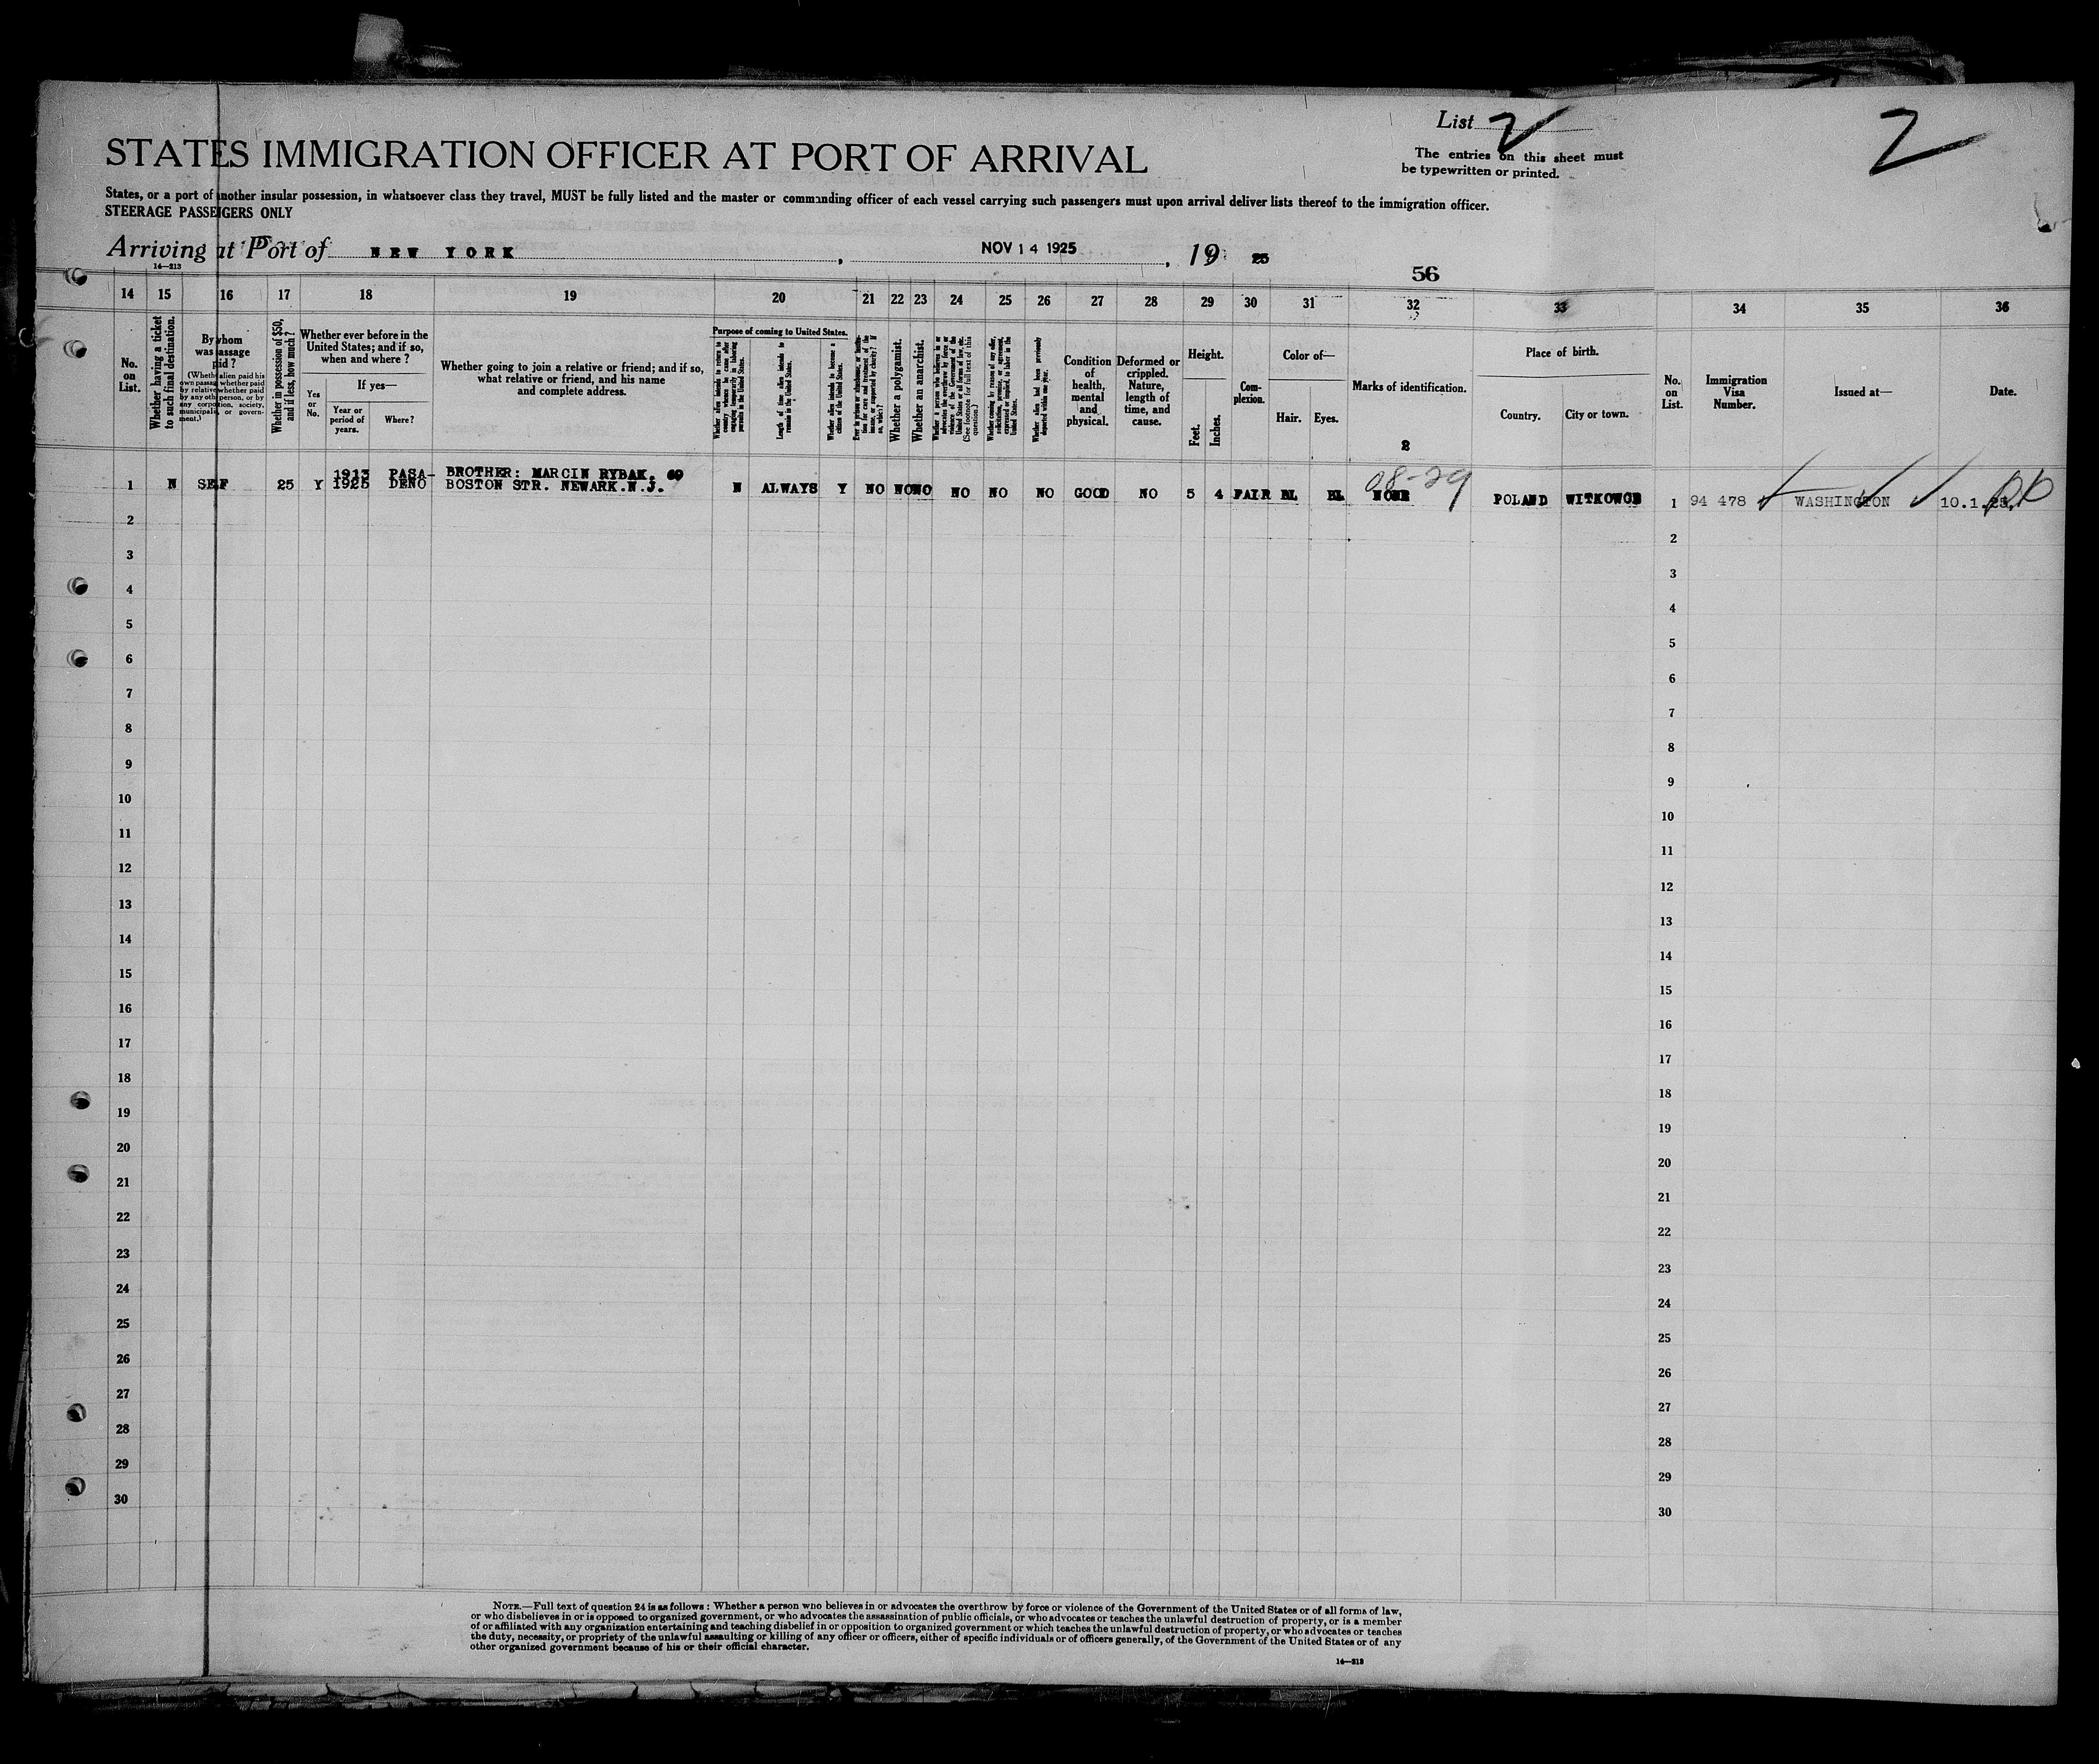 List 2
2
STATES IMMIGRATION OFFICER AT PORT OF ARRIVAL
The entries on this sheet must
be typewritten or printed.
States, or a port of another insular possession, in whatsoever class they travel, MUST be fully listed and the master or commanding officer of each vessel carrying such passengers must upon arrival deliver lists thereof to the immigration officer.
STEERAGE PASSENGERS ONLY
Arriving at Port of NEW YORK, NOV 14 1925, 19 25
14—213
56
14 15 16 17 18 19 20 21 22 23 24 25 26 27 28 29 30 31 32 33 34 35 36
No. on List.
Whether having a ticket to such final destination.
By whom was passage paid?
(Whether alien paid his own passage, whether paid by relative, whether paid by any other person, or by any corporation, society, municipality, or government.)
Whether in possession of $50, and if less, how much?
Whether ever before in the United States; and if so, when and where?
Yes or No.
If yes—
Year or period of years.
Where?
Whether going to join a relative or friend; and if so, what relative or friend, and his name and complete address.
Purpose of coming to United States.
Whether alien intends to return to country whence he came after engaging temporarily in laboring pursuits in the United States.
Length of time alien intends to remain in the United States.
Whether alien intends to become a citizen of the United States.
Whether a polygamist.
Whether an anarchist.
(See footnote for full text of this question.)
Whether alien had been previously deported within one year.
Condition of health, mental and physical.
Deformed or crippled. Nature, length of time, and cause.
Height.
Feet.
Inches.
Complexion.
Color of—
Hair.
Eyes.
Marks of identification.
2
Place of birth.
Country.
City or town.
No. on List.
Immigration Visa Number.
Issued at—
Date.
1913 PASA- BROTHER: MARCIN RYBAK, 69
1 N SELF 25 Y 1925 DENO BOSTON STR. NEWARK.N.J. N ALWAYS Y NO NO NO NO NO NO GOOD NO 5 4 FAIR BL BL NONE 08-29 POLAND WITKOWCE 1 94 478 WASHINGTON 10.1.25.
2 2
3 3
4 4
5 5
6 6
7 7
8 8
9 9
10 10
11 11
12 12
13 13
14 14
15 15
16 16
17 17
18 18
19 19
20 20
21 21
22 22
23 23
24 24
25 25
26 26
27 27
28 28
29 29
30 30
NOTE.—Full text of question 24 is as follows: Whether a person who believes in or advocates the overthrow by force or violence of the Government of the United States or of all forms of law,
or who disbelieves in or is opposed to organized government, or who advocates the assassination of public officials, or who advocates or teaches the unlawful destruction of property, or is a member
of or affiliated with any organization entertaining and teaching disbelief in or opposition to organized government or which teaches the unlawful destruction of property, or who advocates or teaches
the duty, necessity, or propriety of the unlawful assaulting or killing of any officer or officers, either of specific individuals or of officers generally, of the Government of the United States or of any
other organized government because of his or their official character.
14—213